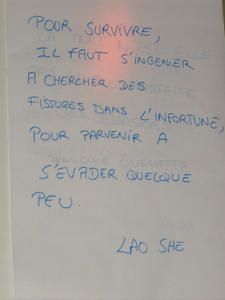 POUR SURVIVRE,
IL FAUT S'INGENIER
A CHERCHER DES
FISSURES DANS L'INFORTUNE,
POUR PARVENIR A
S'EVADER QUELQUE
PEU.
LAO SHE